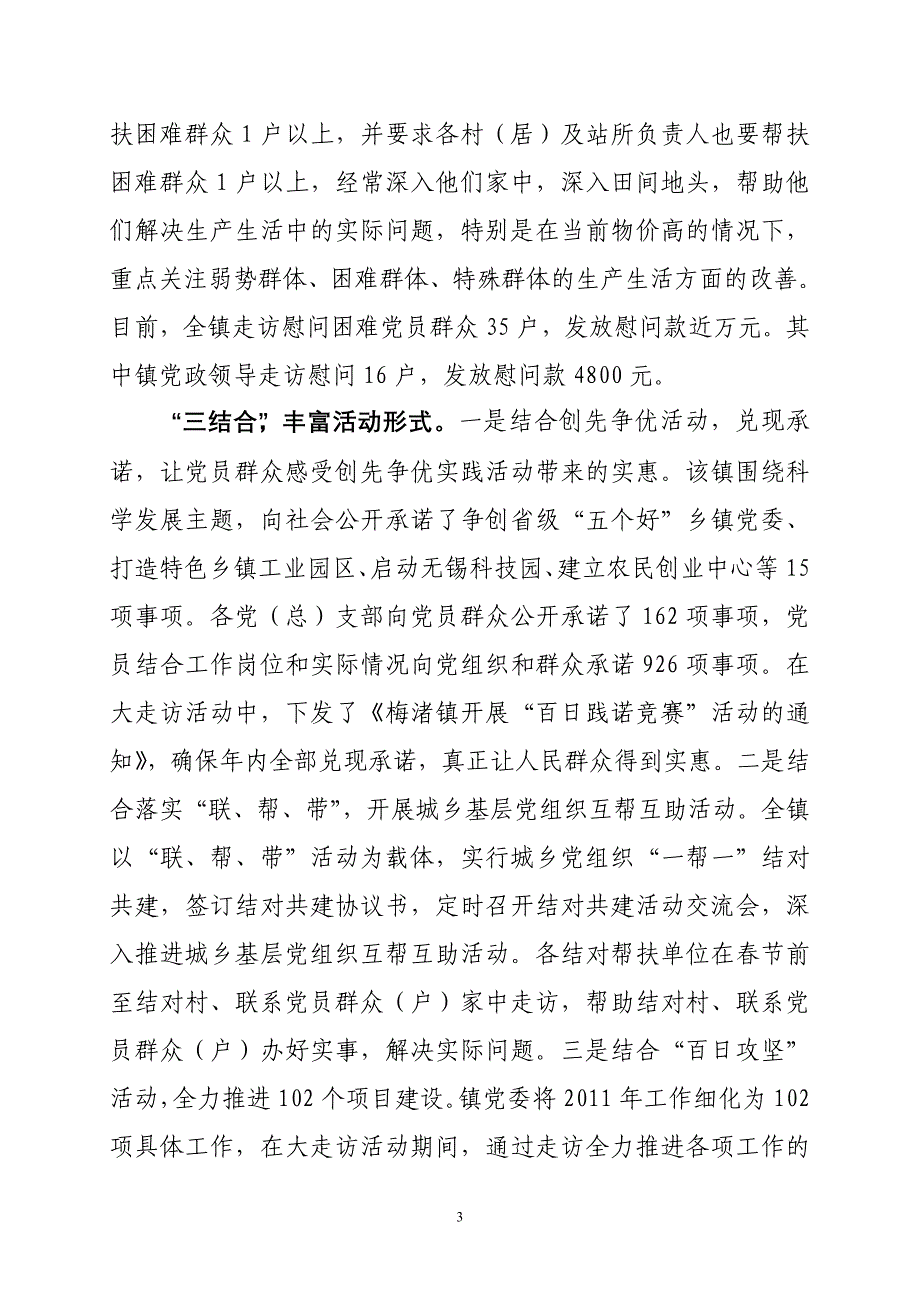 扶困难群众 1 户以上，并要求各村（居）及站所负责人也要帮扶
困难群众 1 户以上，经常深入他们家中，深入田间地头，帮助他
们解决生产生活中的实际问题，特别是在当前物价高的情况下，
重点关注弱势群体、困难群体、特殊群体的生产生活方面的改善。
目前，全镇走访慰问困难党员群众 35 户，发放慰问款近万元。其
中镇党政领导走访慰问 16 户，发放慰问款 4800 元。
“三结合”，丰富活动形式。一是结合创先争优活动，兑现承
诺，让党员群众感受创先争优实践活动带来的实惠。该镇围绕科
学发展主题，向社会公开承诺了争创省级“五个好”乡镇党委、
打造特色乡镇工业园区、启动无锡科技园、建立农民创业中心等 15
项事项。各党（总）支部向党员群众公开承诺了 162 项事项，党
员结合工作岗位和实际情况向党组织和群众承诺 926 项事项。在
大走访活动中，下发了《梅渚镇开展“百日践诺竞赛”活动的通
知》，确保年内全部兑现承诺，真正让人民群众得到实惠。二是结
合落实“联、帮、带”，开展城乡基层党组织互帮互助活动。全镇
以“联、帮、带”活动为载体，实行城乡党组织“一帮一”结对
共建，签订结对共建协议书，定时召开结对共建活动交流会，深
入推进城乡基层党组织互帮互助活动。各结对帮扶单位在春节前
至结对村、联系党员群众（户）家中走访，帮助结对村、联系党
员群众（户）办好实事，解决实际问题。三是结合“百日攻坚”
活动，全力推进 102 个项目建设。镇党委将 2011 年工作细化为 102
项具体工作，在大走访活动期间，通过走访全力推进各项工作的
3